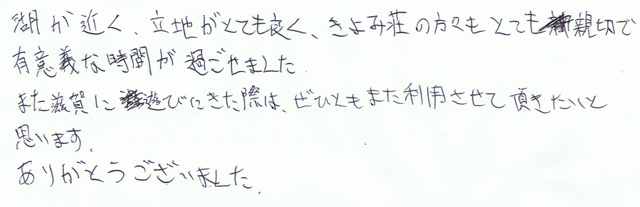 湖が近く、立地がとても良く、きよみ荘の方々もとても親切で
有意義な時間が過ごせました
また滋賀に遊びにきた際は、ぜひともまた利用させて頂きたいと
思います。
ありがとうございました。